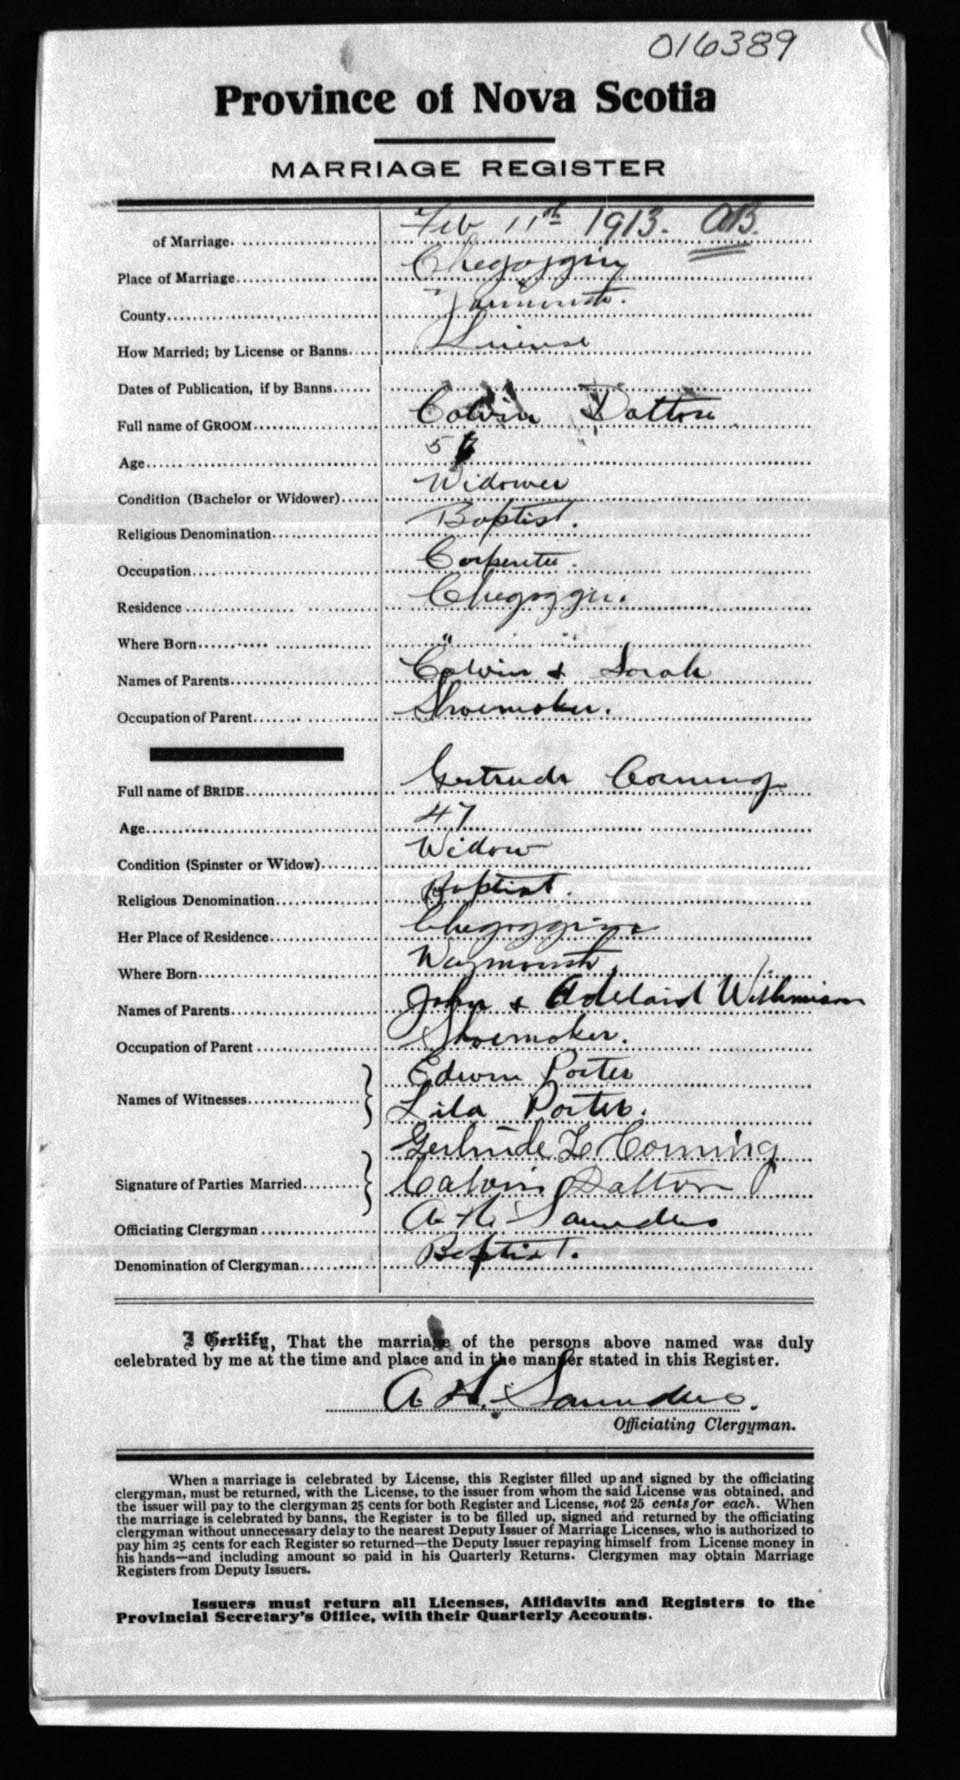 016389
Province of Nova Scotia
MARRIAGE REGISTER
of Marriage. Feb 11th 1913. AB.
Place of Marriage Chegoggin
County Yarmouth.
How Married; by License or Banns License
Dates of Publication, if by Banns
Full name of GROOM Calvin Dalton
Age 5
Condition (Bachelor or Widower) Widower
Religious Denomination Baptist.
Occupation Carpenter.
Residence Chegoggin.
Where Born "
Names of Parents Calvin & Sarah
Occupation of Parent Shoemaker.
Full name of BRIDE Gertrude Corning
Age 47
Condition (Spinster or Widow) Widow
Religious Denomination Baptist.
Her Place of Residence Chegoggin
Where Born Weymouth.
Names of Parents John & Adelaid
Occupation of Parent Shoemaker.
Names of Witnesses Edwin Porter
Lila Porter.
Signature of Parties Married Gertrude L Corning
Calvin Dalton
Officiating Clergyman A H Saunders
Denomination of Clergyman Baptist.
I Certify, That the marriage of the persons above named was duly
celebrated by me at the time and place and in the manner stated in this Register.
A. H. Saunders.
Officiating Clergyman.
When a marriage is celebrated by License, this Register filled up and signed by the officiating
clergyman, must be returned, with the License, to the issuer from whom the said License was obtained, and
the issuer will pay to the clergyman 25 cents for both Register and License, not 25 cents for each. When
the marriage is celebrated by banns, the Register is to be filled up, signed and returned by the officiating
clergyman without unnecessary delay to the nearest Deputy Issuer of Marriage Licenses, who is authorized to
pay him 25 cents for each Register so returned—the Deputy Issuer repaying himself from License money in
his hands—and including amount so paid in his Quarterly Returns. Clergymen may obtain Marriage
Registers from Deputy Issuers.
Issuers must return all Licenses, Affidavits and Registers to the
Provincial Secretary's Office, with their Quarterly Accounts.